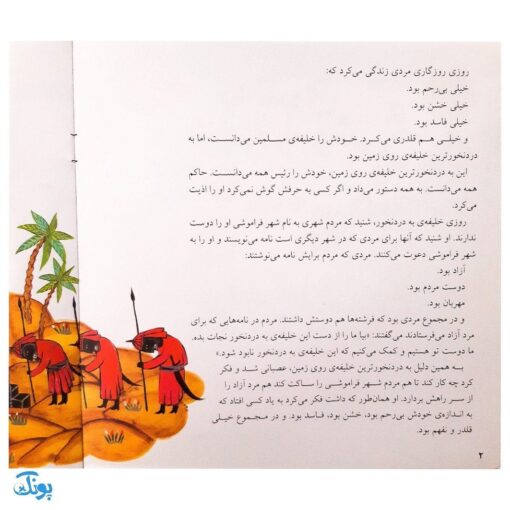 روزی روزگاری مردی زندگی می‌کرد که:
خیلی بی‌رحم بود.
خیلی خشن بود.
خیلی فاسد بود.
و خیلـی هـم قلدری می‌کـرد. خـودش را خلیفه‌ی مسـلمین می‌دانسـت، اما به
دردنخورترین خلیفه‌ی روی زمین بود.
این به دردنخورترین خلیفه‌ی روی زمین، خودش را رئیس همه می‌دانسـت. حاکم
همه می‌دانست. به همه دستور می‌داد و اگر کسی به حرفش گوش نمی‌کرد او را اذیت
می‌کرد.
روزی خلیفه‌ی به دردنخور، شنید که مردم شهری به نام شهر فراموشی او را دوست
ندارند. او شنید که آنها برای مردی که در شهر دیگری است نامه می‌نویسند و او را به
شهر فراموشی دعوت می‌کنند. مردی که مردم برایش نامه می‌نوشتند:
آزاد بود.
دوست مردم بود.
مهربان بود.
و در مجموع مردی بود که فرشته‌ها هم دوستش داشتند. مردم در نامه‌هایی که برای
مرد آزاد می‌فرستادند می‌گفتند: «بیا ما را از دست این خلیفه‌ی به دردنخور نجات بده.
ما دوست تو هستیم و کمک می‌کنیم که این خلیفه‌ی به دردنخور نابود شود.»
بـه همین دلیل به دردنخورترین خلیفه‌ی روی زمین، عصبانی شـد و فکر
کرد چه کار کند تا هم مردم شـهر فراموشـی را سـاکت کند هم مرد آزاد را
از سـر راهش بردارد. او همان‌طور که داشت فکر می‌کرد به یاد کسی افتاد که
به اندازه‌ی خودش بی‌رحم بود، خشن بود، فاسد بود. و در مجموع خیلی
قلدر و نفهم بود.
۲
پونک